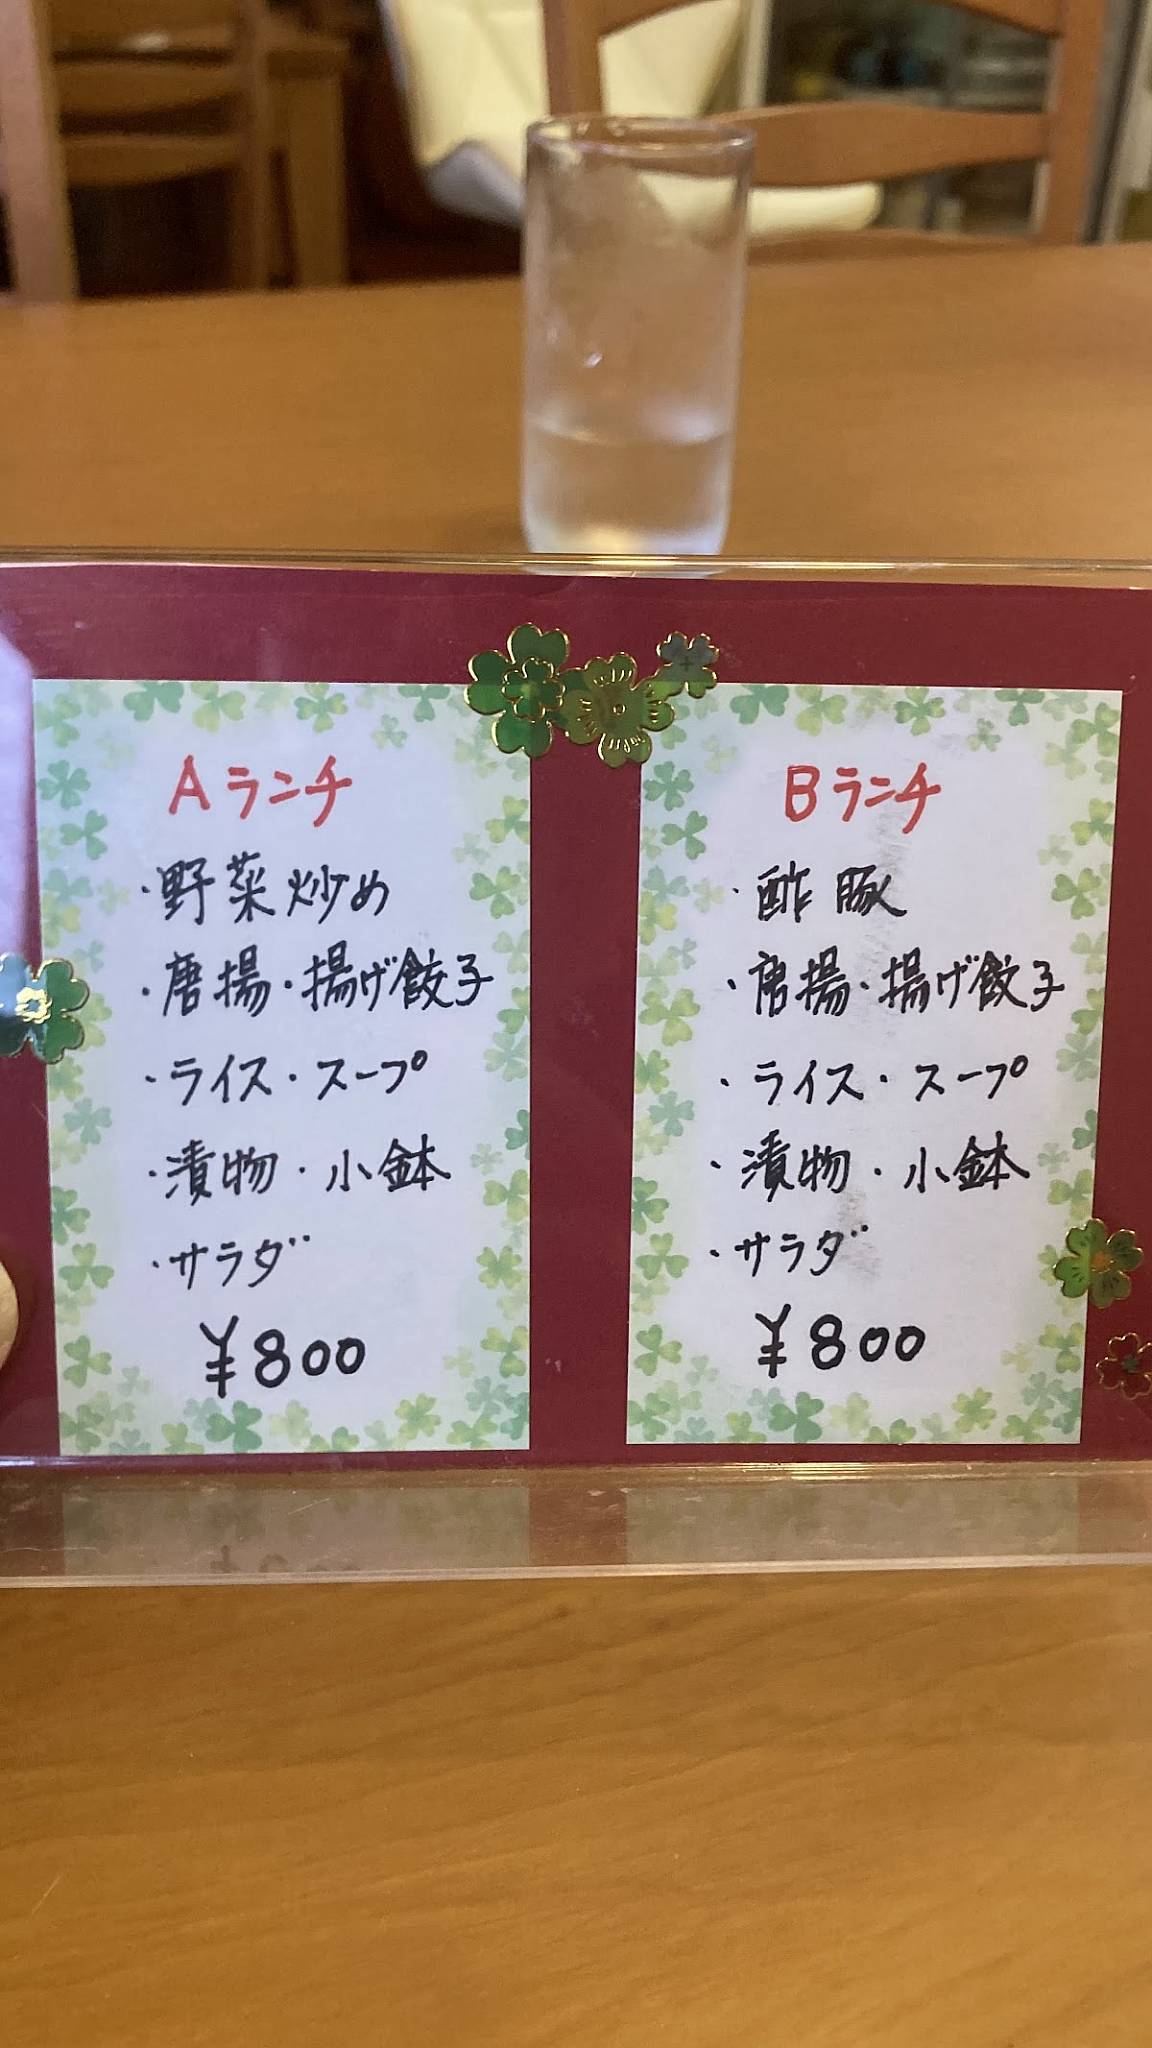 Aランチ
・野菜炒め
・唐揚・揚げ餃子
・ライス・スープ
・漬物・小鉢
・サラダ
¥800
Bランチ
・酢豚
・唐揚・揚げ餃子
・ライス・スープ
・漬物・小鉢
・サラダ
¥800